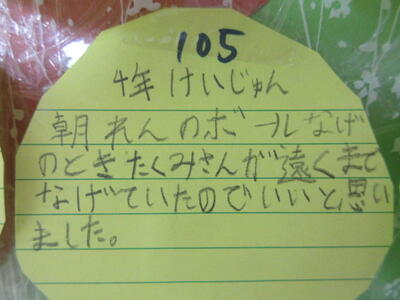 105
4年 けいじゅん
朝れんのボールなげ
のときたくみさんが遠くまで
なげていたのでいいと思い
ました。